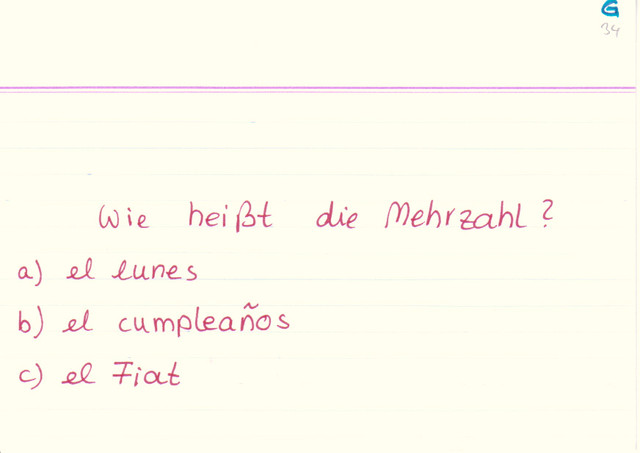 G
34
Wie heißt die Mehrzahl?
a) el lunes
b) el cumpleaños
c) el Fiat